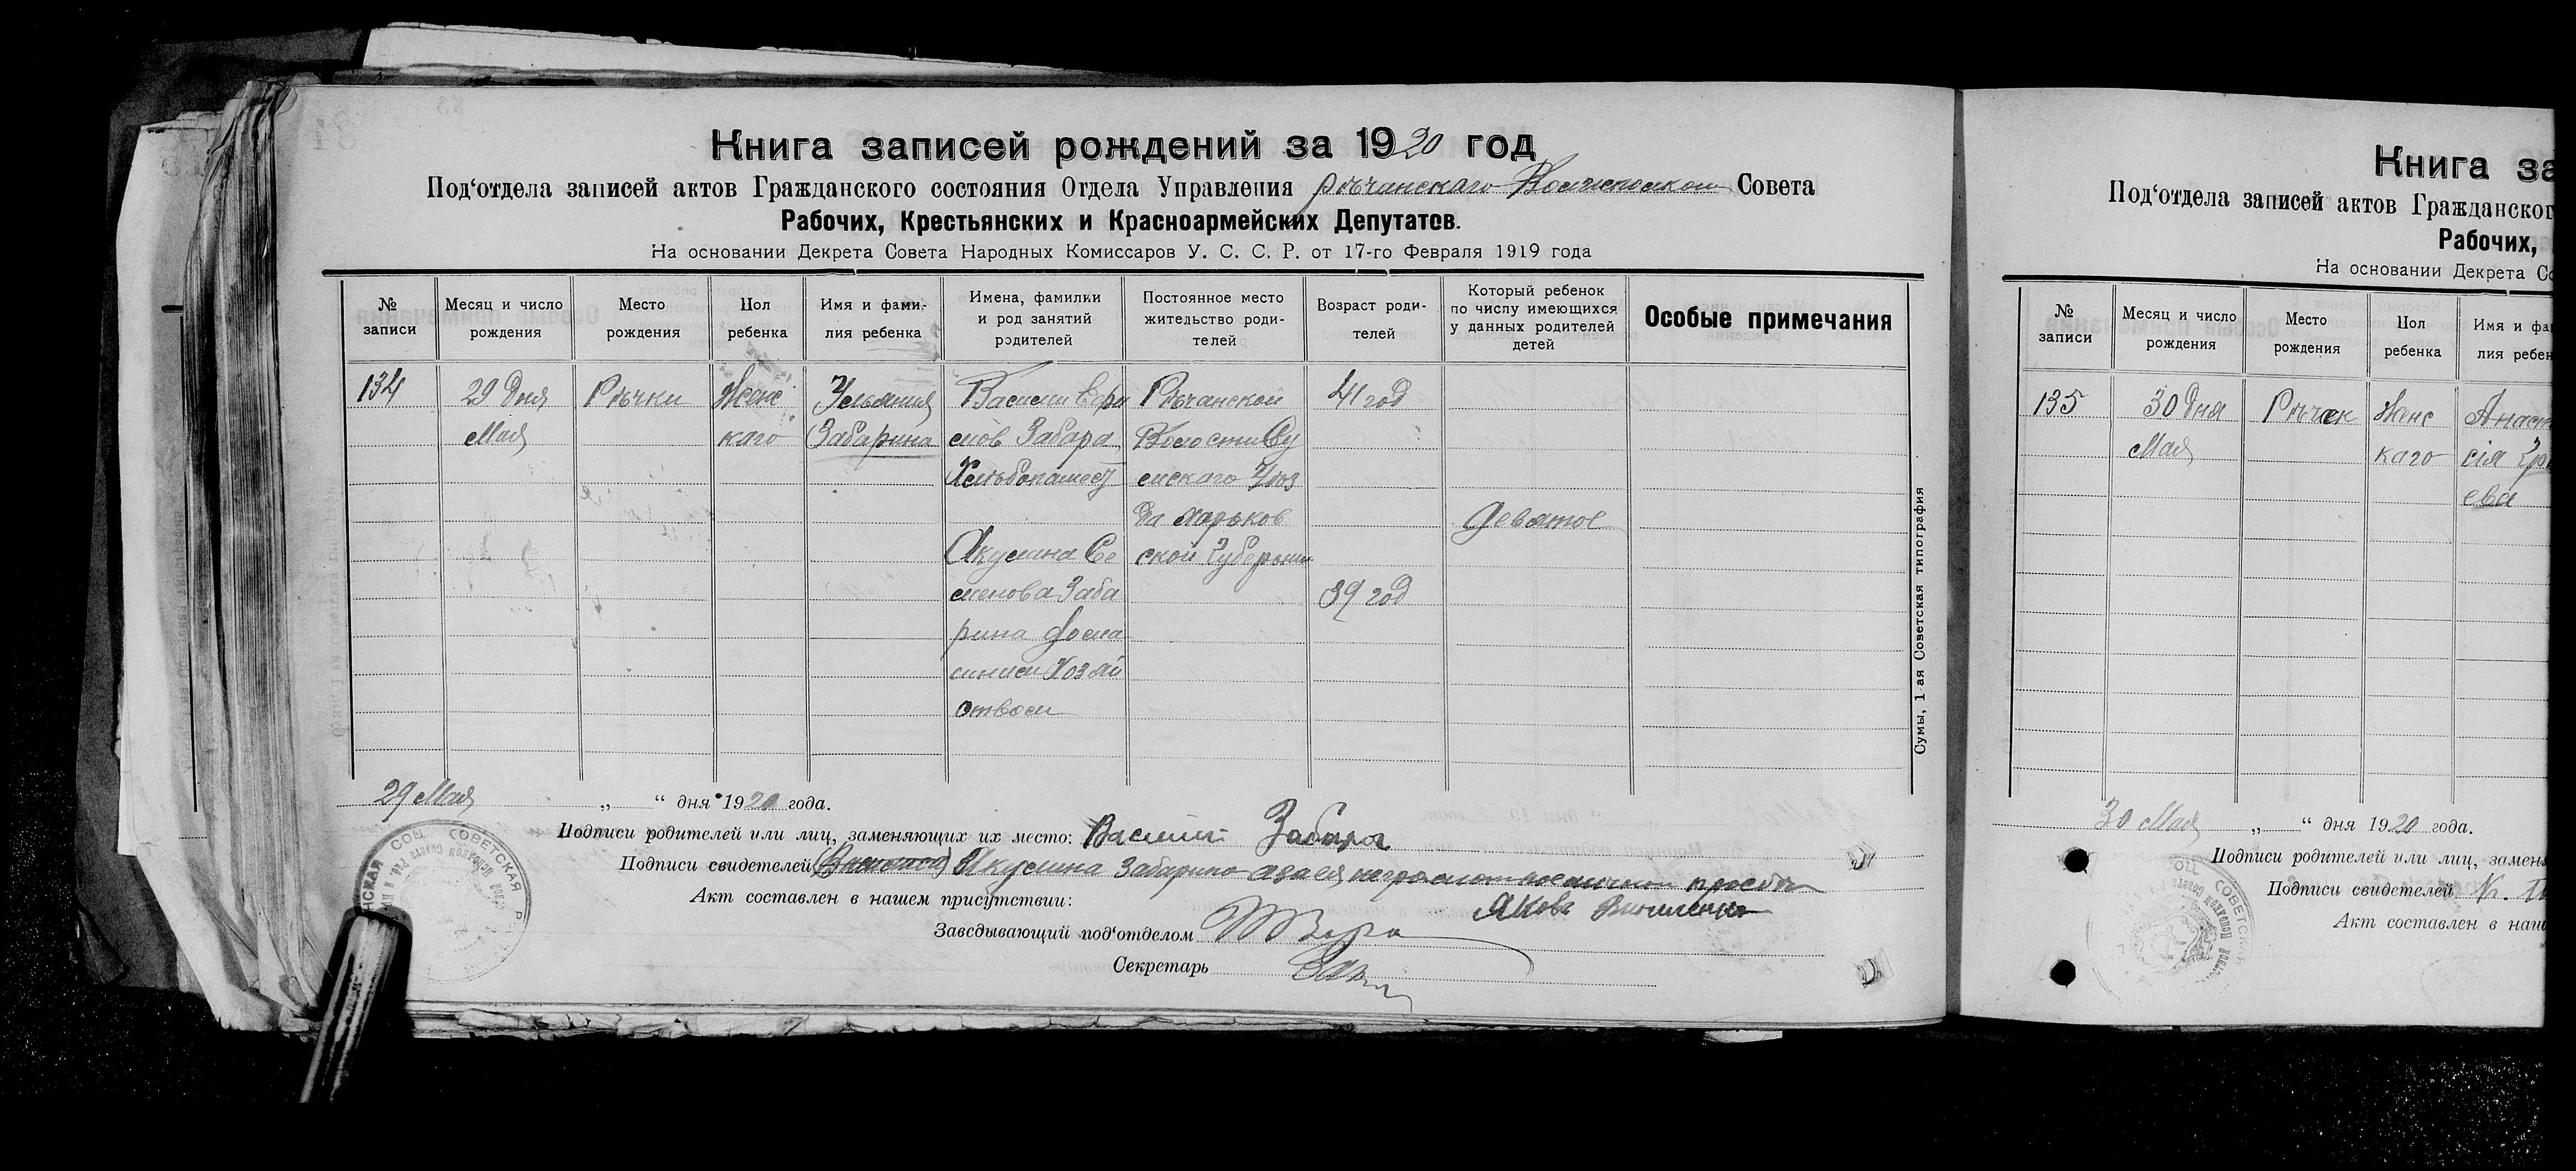 Книга записей рождений за 1920 год
Под‘отдела записей актов Гражданского состояния Отдела Управления Рѣчанскаго Совета
Рабочих, Крестьянских и Красноармейских Депутатов.
На основании Декрета Совета Народных Комиссаров У. С. С. Р. от 17-го Февраля 1919 года
№ записи
Месяц и число рождения
Место рождения
Пол ребенка
Имя и фами- лия ребенка
Имена, фамилии и род занятий родителей
Постоянное место жительство роди- телей
Возраст роди- телей
Который ребенок по числу имеющихся у данных родителей детей
Особые примечания
134
29 Дня
Мая
Рѣчки
Женс
каго
Ульяния
Забарина
Василий
Забара
Хлѣбопашец
Акулина Се
менова Заба
рина Дома
Хозяй
Рѣчанской
Волости Су
мскаго Уѣз
да Харьков
ской Губернии
41 год
39 год
Девятое
29 Мая „ “ дня 1920 года.
Подписи родителей или лиц, заменяющих их место: Василий Забара
Подписи свидетелей Акулина Забарина
Яковъ
Акт составлен в нашем присутствии:
Заведывающий под‘отделом
Секретарь
Сумы, 1-ая Советская типография
СОЦ СОВЕТСКАЯ
Книга за
Под‘отдела записей актов Гражданског
Рабочих,
На основании Декрета Со
№ записи
Месяц и число рождения
Место рождения
Пол ребенка
Имя и фа
лия ребен
135
30 Дня
Мая
Рѣчек
Женс
каго
Анаст
сія
ева
30 Мая „ “ дня 1920 года.
Подписи родителей или лиц, заменя
Подписи свидетелей
Акт составлен в наш